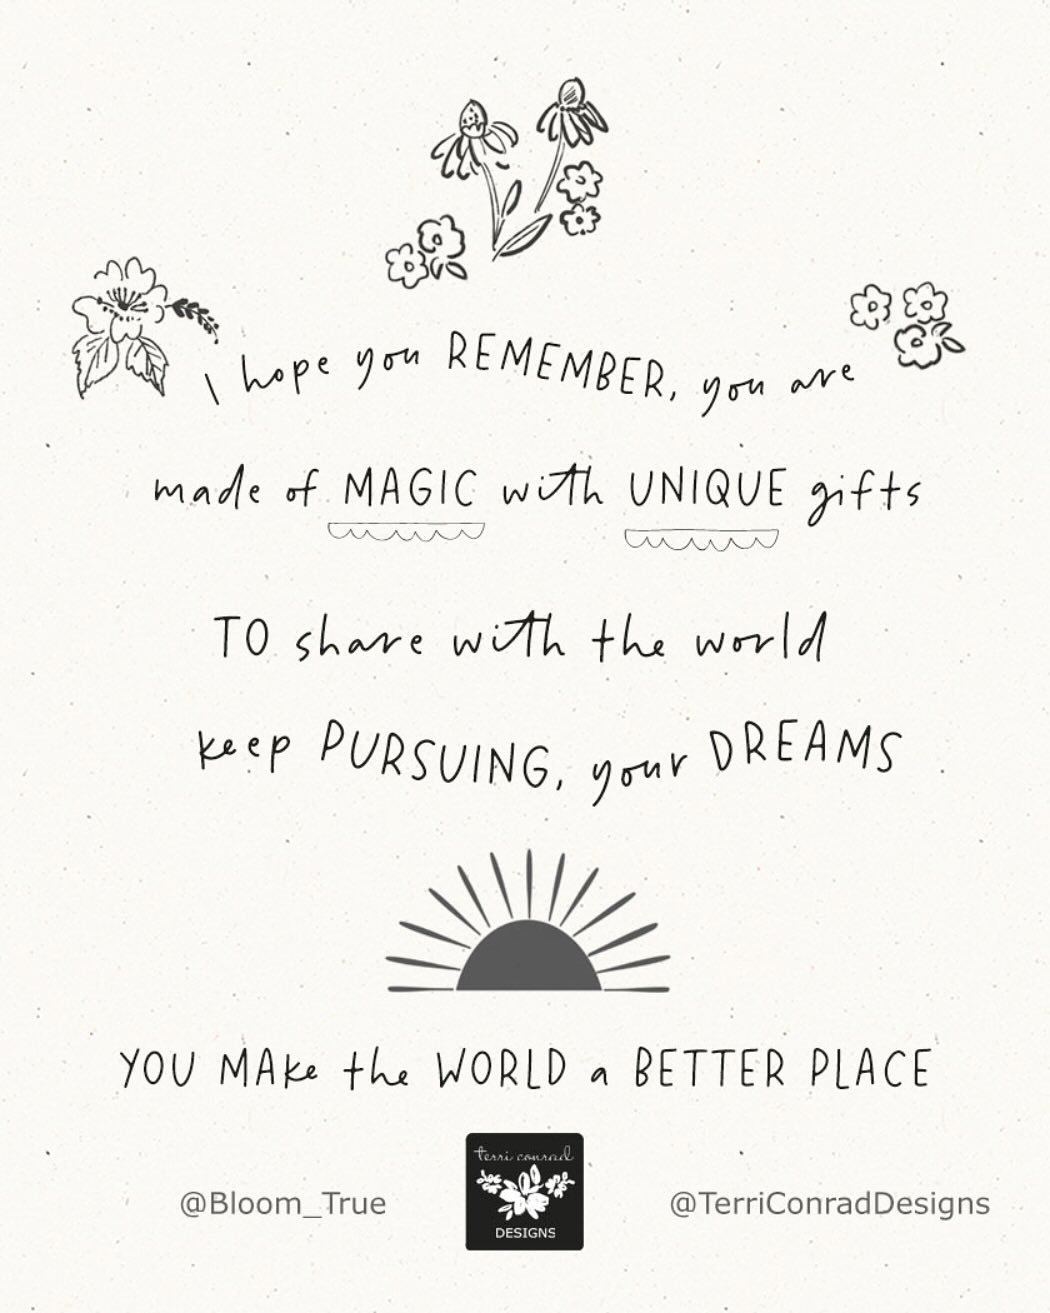 I hope you REMEMBER, you are
made of MAGIC with UNIQUE gifts
TO share with the world
keep PURSUING, your DREAMS
YOU MAke the WORLD a BETTER PLACE
terri conrad
DESIGNS
@Bloom_True
@TerriConradDesigns